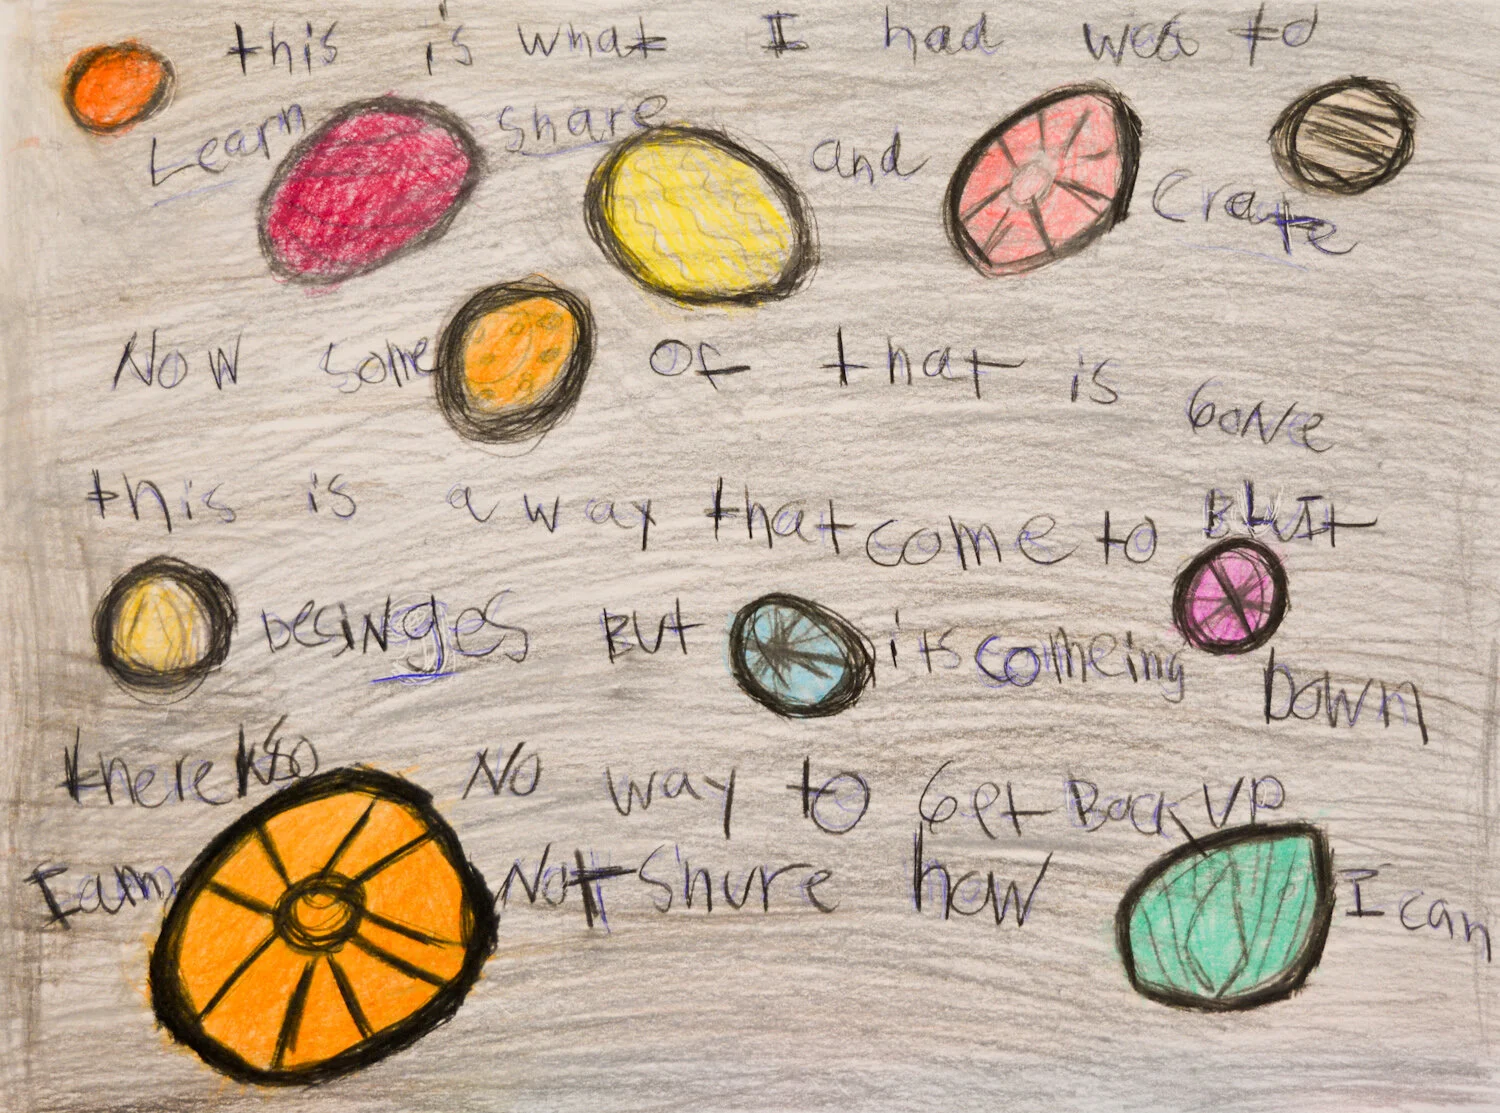 this is what I had was to
Learn share and Crate
Now some of that is GoNe
this is a way that come to BUIt
DesiNges BUt its comeing DowN
there is No way to Get Back UP
I am Not Shure how I can